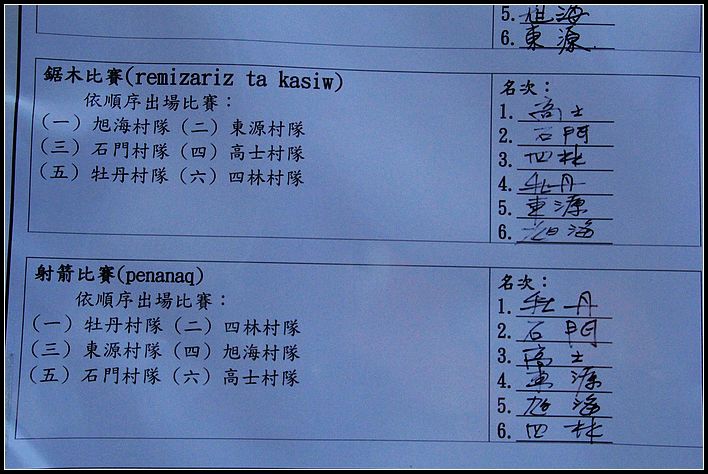 5. 旭海
6. 東源
鋸木比賽(remizariz ta kasiw)
依順序出場比賽：
(一) 旭海村隊 (二) 東源村隊
(三) 石門村隊 (四) 高士村隊
(五) 牡丹村隊 (六) 四林村隊
名次：
1. 高士
2. 石門
3. 四林
4. 牡丹
5. 東源
6. 旭海
射箭比賽(penanaq)
依順序出場比賽：
(一) 牡丹村隊 (二) 四林村隊
(三) 東源村隊 (四) 旭海村隊
(五) 石門村隊 (六) 高士村隊
名次：
1. 牡丹
2. 石門
3. 高士
4. 東源
5. 旭海
6. 四林